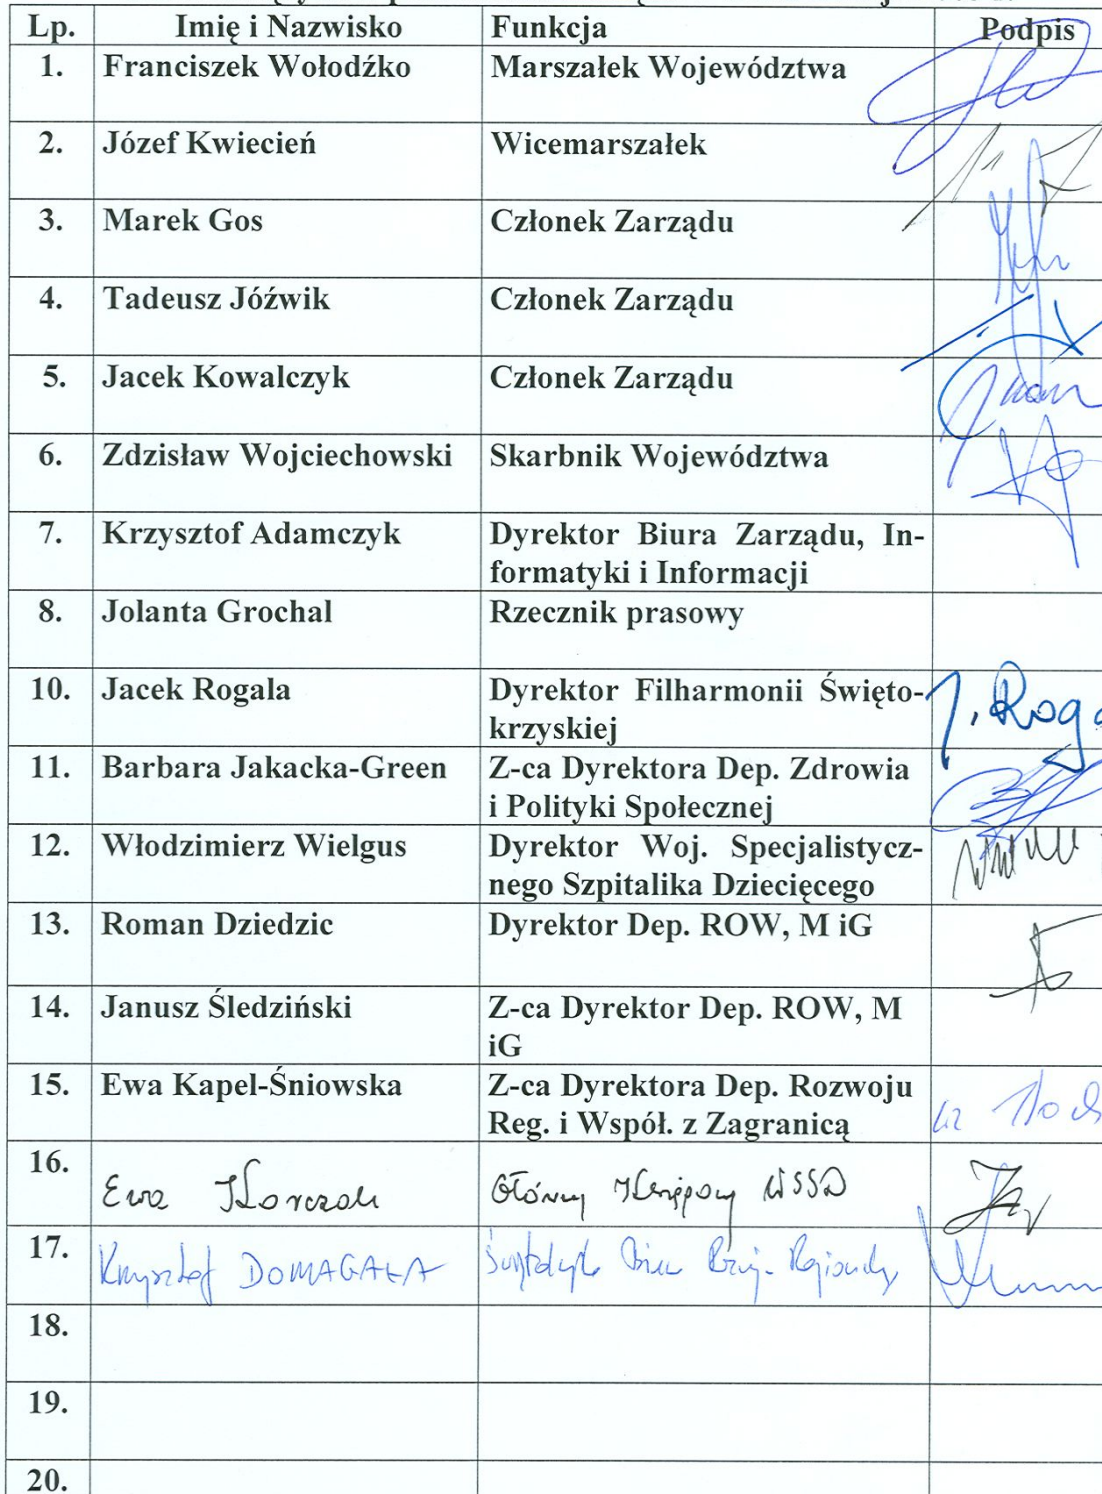 Lp. Imię i Nazwisko Funkcja Podpis
1. Franciszek Wołodźko Marszałek Województwa
2. Józef Kwiecień Wicemarszałek
3. Marek Gos Członek Zarządu
4. Tadeusz Jóźwik Członek Zarządu
5. Jacek Kowalczyk Członek Zarządu
6. Zdzisław Wojciechowski Skarbnik Województwa
7. Krzysztof Adamczyk Dyrektor Biura Zarządu, In-
formatyki i Informacji
8. Jolanta Grochal Rzecznik prasowy
10. Jacek Rogala Dyrektor Filharmonii Święto-
krzyskiej
11. Barbara Jakacka-Green Z-ca Dyrektora Dep. Zdrowia
i Polityki Społecznej
12. Włodzimierz Wielgus Dyrektor Woj. Specjalistycz-
nego Szpitalika Dziecięcego
13. Roman Dziedzic Dyrektor Dep. ROW, M iG
14. Janusz Śledziński Z-ca Dyrektor Dep. ROW, M
iG
15. Ewa Kapel-Śniowska Z-ca Dyrektora Dep. Rozwoju
Reg. i Współ. z Zagranicą
16. Ewa Korczak Główny Księgowy WSSD
17. Krzysztof DOMAGAŁA
18.
19.
20.